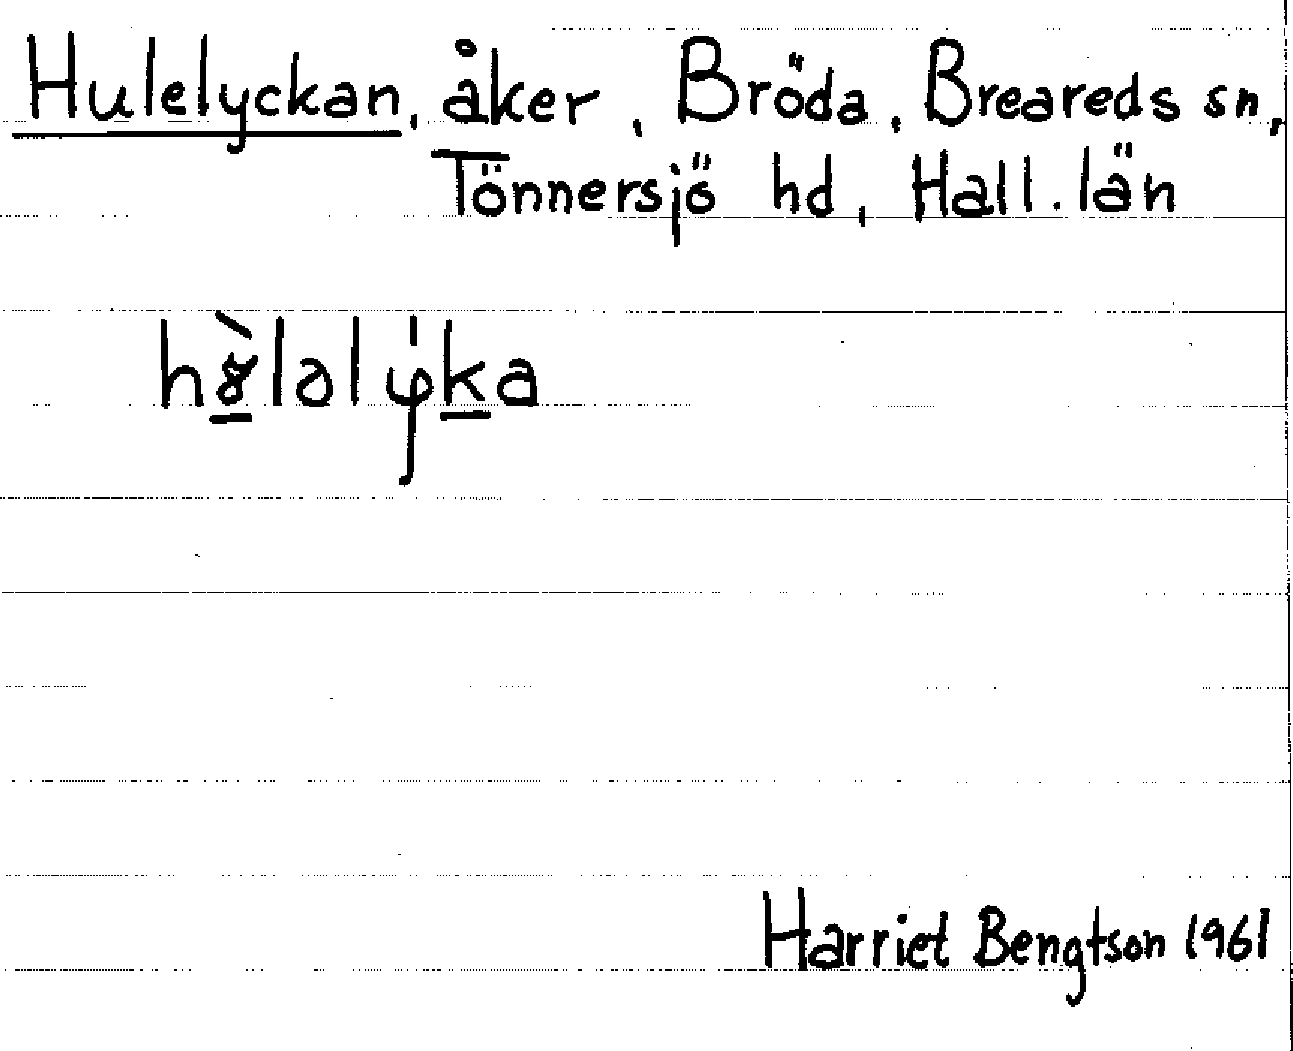 Hulelyckan, åker, Bröda, Breareds sn,
Tönnersjö hd, Hall. län
Harriet Bengtson 1961